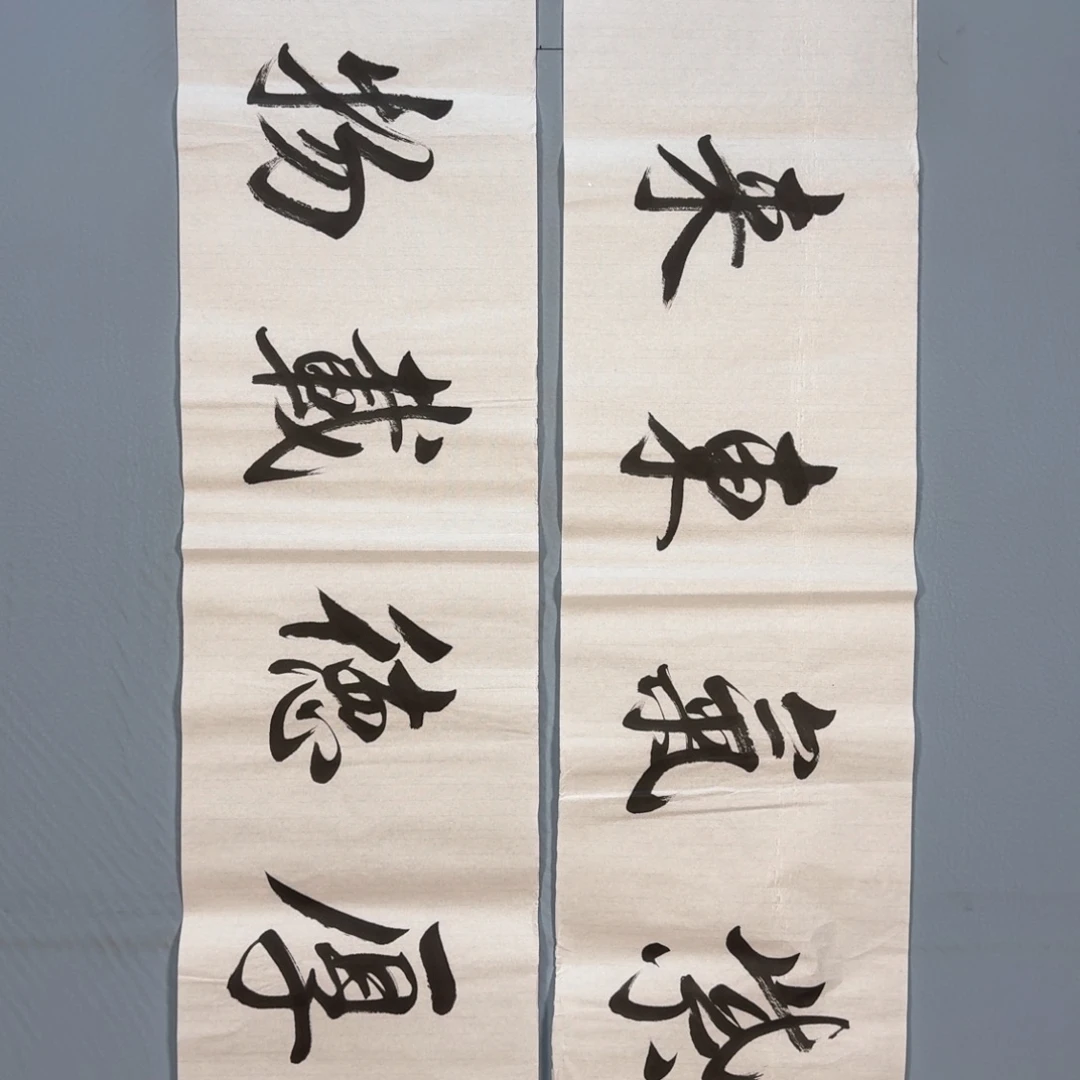 紫氣東来
厚德載物